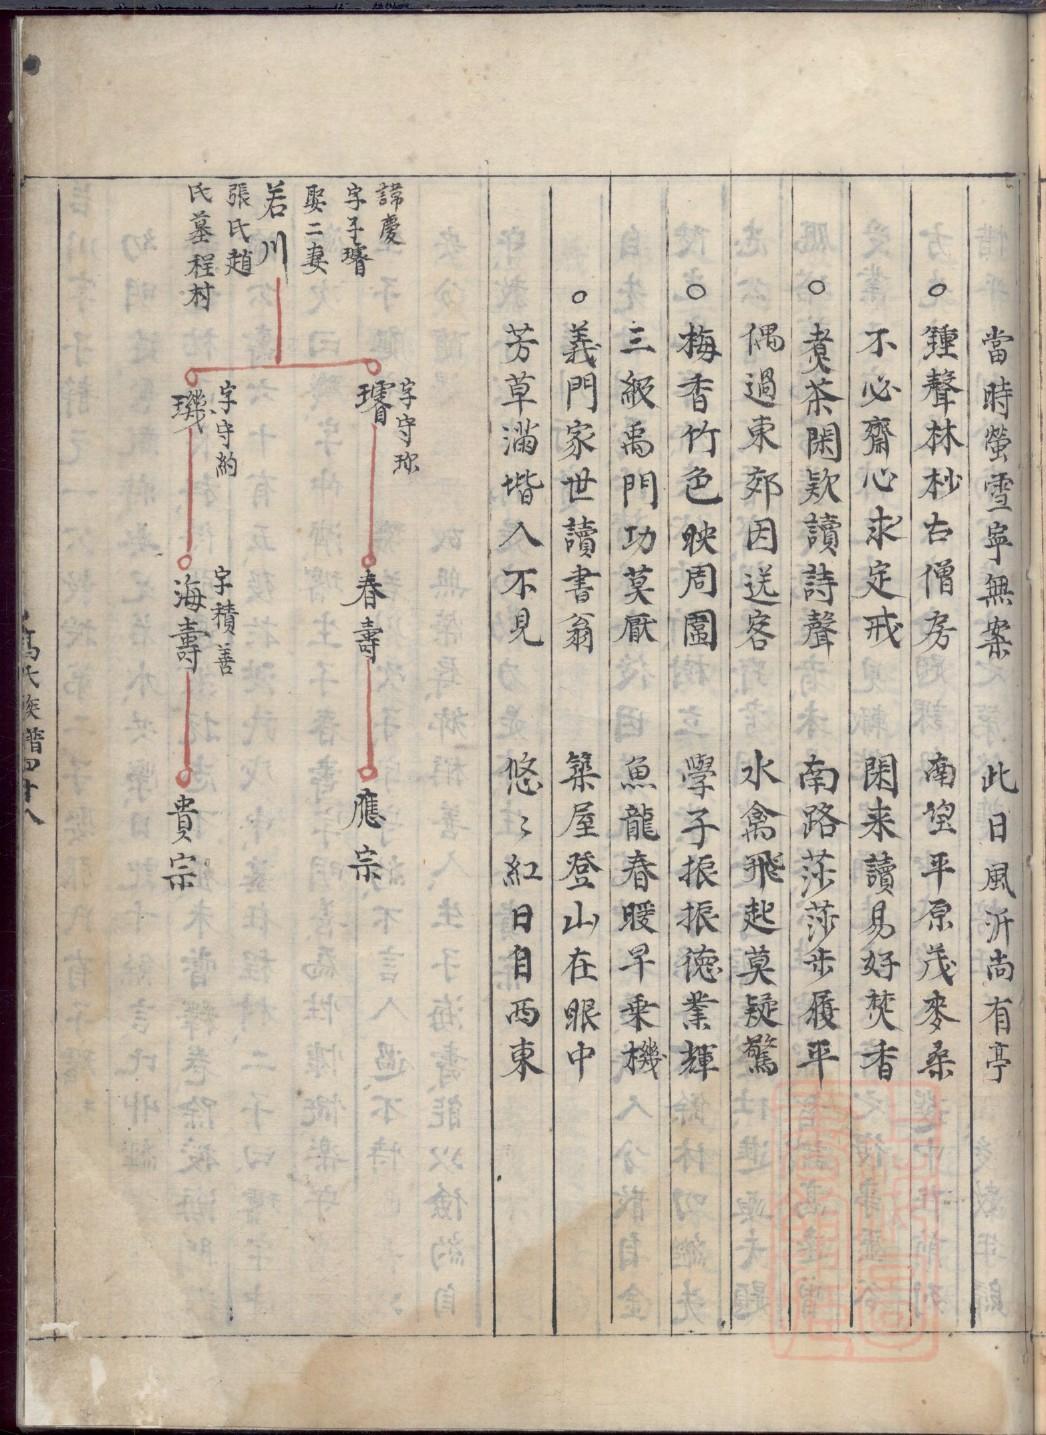 當時螢雪寧無案　此日風沂尚有亭
○鍾聲林杪古僧房　南望平原茂麥桑
不必齋心求定戒　閑来讀易好焚香
○煑茶閑欵讀詩聲　南路莎莎步履平
偶過東郊因送客　水禽飛起莫疑驚
○梅香竹色映周圍　學子振振德業輝
三級禹門功莫厭　魚龍春暖早乗機
○義門家世讀書翁　築屋登山在眼中
芳草滿堦人不見　悠〻紅日自西東
諱慶
字子璿
娶二妻
若川
張氏趙
氏墓程村
璿
字守珎
春壽
應宗
璣
字守約
海壽
字積善
貴宗
髙氏族譜四十八